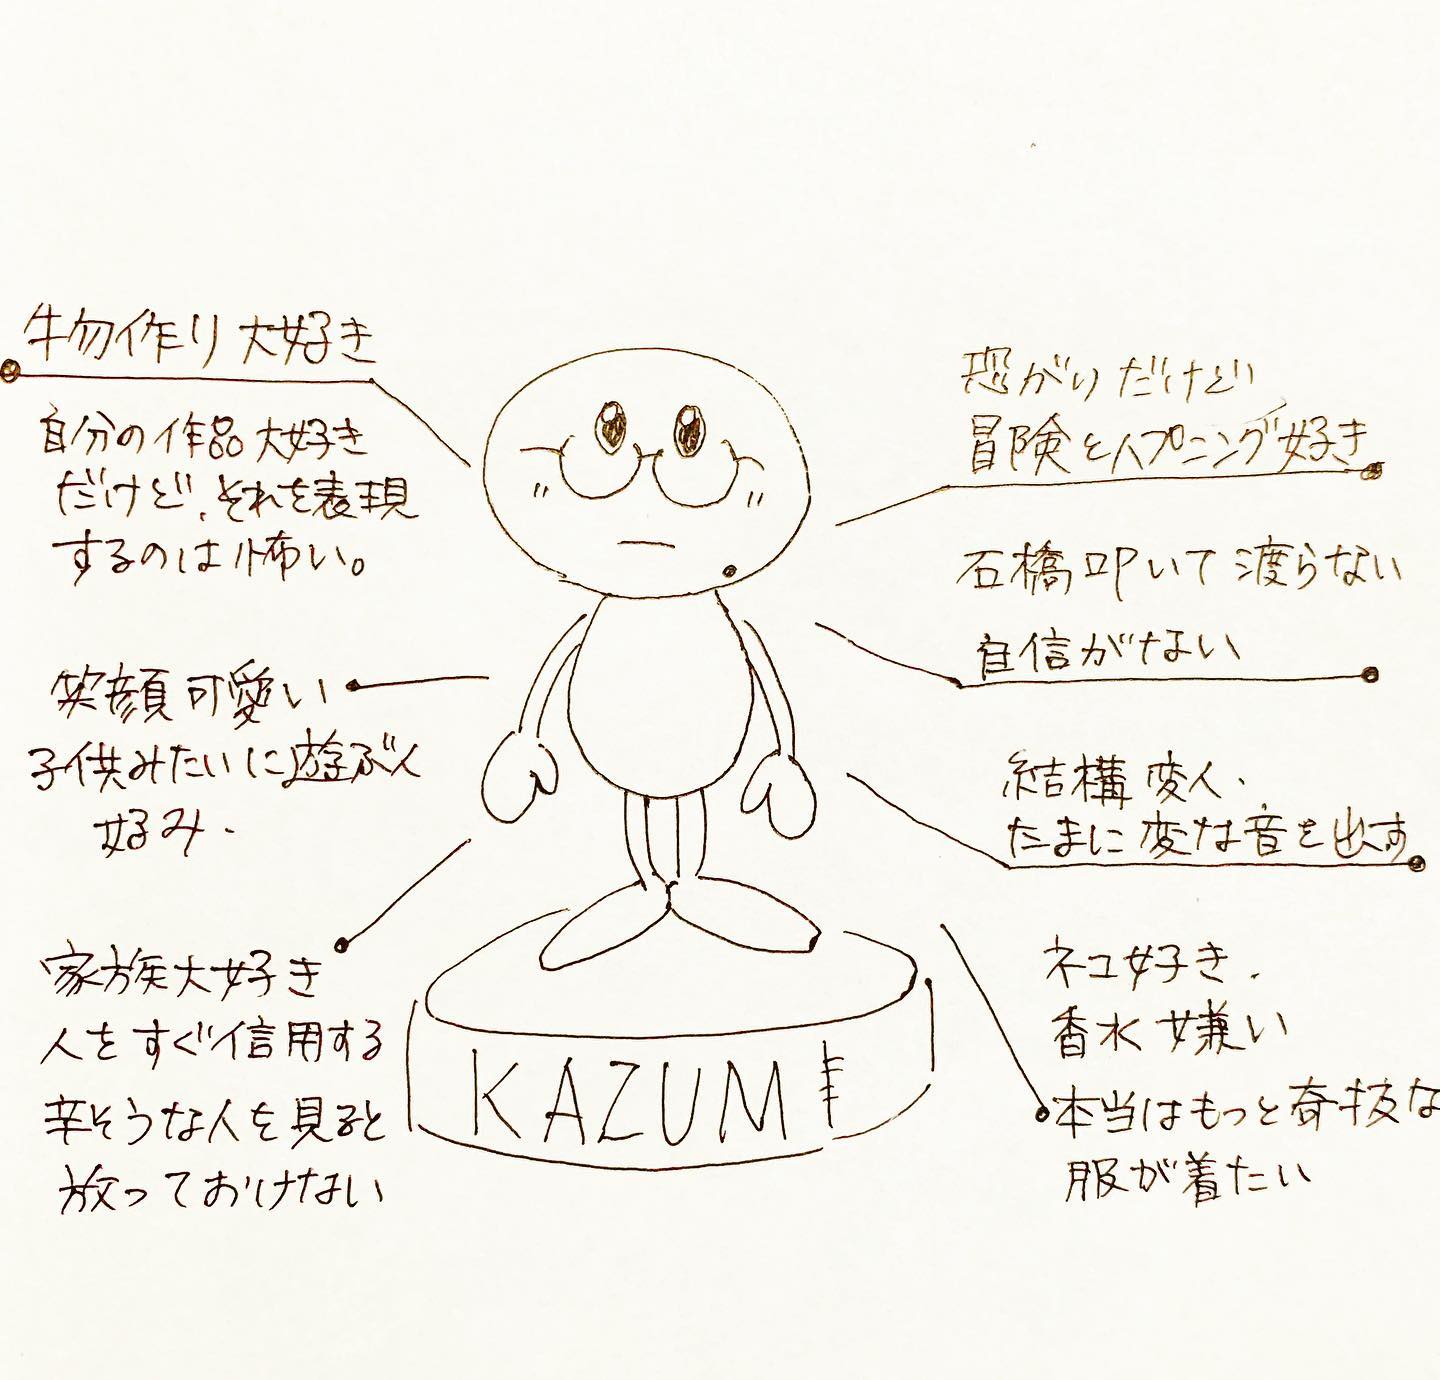 物作り大好き
自分の作品大好き
だけど、それを表現
するのは怖い。
笑顔可愛い
子供みたいに遊ぶ人
好み.
家族大好き
人をすぐ信用する
辛そうな人を見ると
放っておけない
恐がりだけど
冒険とハプニング好き
石橋叩いて渡らない
自信がない
結構変人.
たまに変な音を出す
ネコ好き.
香水嫌い
本当はもっと奇抜な
服が着たい
KAZUMI